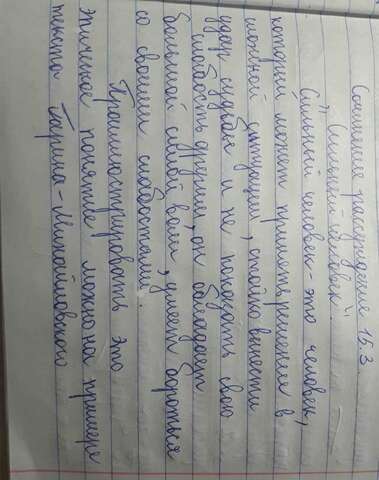 Сочинение рассуждение 15.3.
"Сильный человек".
Сильный человек - это человек,
который может принять решения в
сложной ситуации, стойко вынести
удар судьбы и не показать свою
слабость другим, он обладает
большой силой воли, умеет бороться
со своими слабостями.
Проиллюстрировать это
этическое понятие можно на примере
текста Гарина-Михайловского